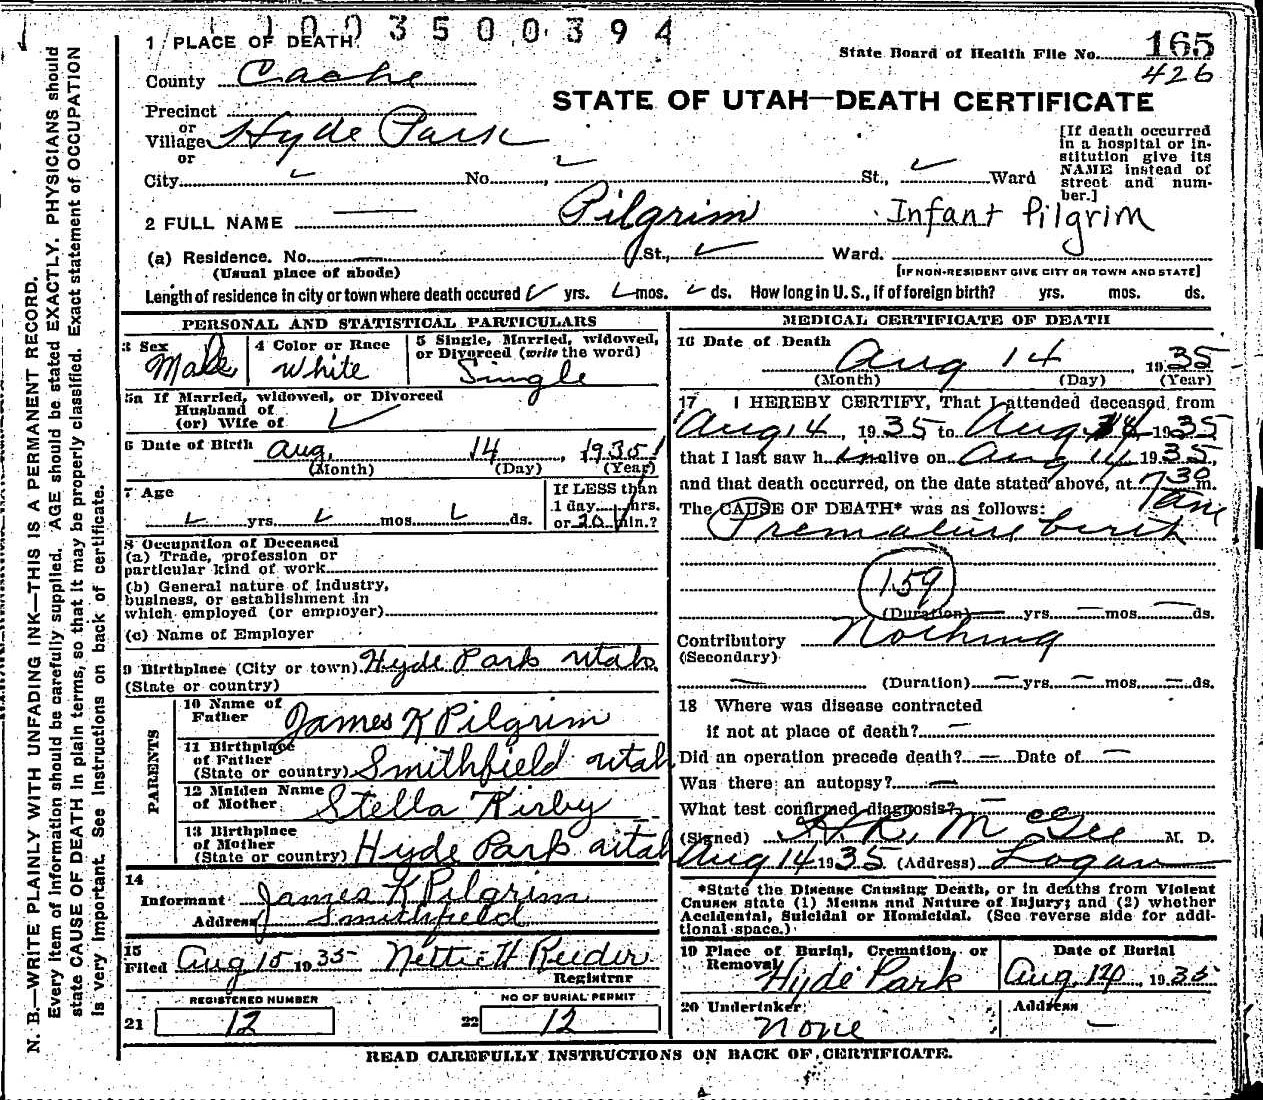 1003500394
1 PLACE OF DEATH
State Board of Health File No. 165
426
County Cache
STATE OF UTAH—DEATH CERTIFICATE
Precinct
or
Village Hyde Park
or
City No. St., Ward
[If death occurred
in a hospital or in-
stitution give its
NAME instead of
street and num-
ber.]
2 FULL NAME — Pilgrim Infant Pilgrim
(a) Residence. No. — St., Ward.
(Usual place of abode)
[IF NON-RESIDENT GIVE CITY OR TOWN AND STATE]
Length of residence in city or town where death occured yrs. mos. ds. How long in U. S., if of foreign birth? yrs. mos. ds.
PERSONAL AND STATISTICAL PARTICULARS
3 Sex Male
4 Color or Race White
5 Single, Married, widowed,
or Divorced (write the word)
Single
5a If Married, widowed, or Divorced
Husband of
(or) Wife of
6 Date of Birth Aug. 14, 1935
(Month) (Day) (Year)
7 Age
yrs. mos. ds.
If LESS than
1 day hrs.
or 20 min.?
8 Occupation of Deceased
(a) Trade, profession or
particular kind of work
(b) General nature of industry,
business, or establishment in
which employed (or employer)
(c) Name of Employer
9 Birthplace (City or town) Hyde Park Utah
(State or country)
PARENTS
10 Name of
Father James K Pilgrim
11 Birthplace
of Father
(State or country) Smithfield Utah
12 Maiden Name
of Mother Stella Kirby
13 Birthplace
of Mother
(State or country) Hyde Park Utah
14
Informant James K Pilgrim
Address Smithfield
15
Filed Aug 15 1935 Nettie H Reeder
Registrar
REGISTERED NUMBER
21 12
NO OF BURIAL PERMIT
22 12
MEDICAL CERTIFICATE OF DEATH
16 Date of Death
Aug 14, 1935
(Month) (Day) (Year)
17 I HEREBY CERTIFY, That I attended deceased from
Aug 14, 1935 to Aug 14 1935
that I last saw h im alive on Aug 14 1935,
and that death occurred, on the date stated above, at 7 30 m.
am
The CAUSE OF DEATH* was as follows:
Premature birth
159
(Duration) — yrs. — mos. — ds.
Contributory Nothing
(Secondary)
— (Duration) — yrs. — mos. — ds.
18 Where was disease contracted
if not at place of death? —
Did an operation precede death? — Date of —
Was there an autopsy? —
What test confirmed diagnosis? —
(Signed) H.R. McGee M. D.
Aug 14 1935 (Address) Logan
*State the Disease Causing Death, or in deaths from Violent
Causes state (1) Means and Nature of Injury; and (2) whether
Accidental, Suicidal or Homicidal. (See reverse side for addi-
tional space.)
19 Place of Burial, Cremation, or
Removal Hyde Park
Date of Burial
Aug. 1935
20 Undertaker
None
Address
—
READ CAREFULLY INSTRUCTIONS ON BACK OF CERTIFICATE.
N. B.—WRITE PLAINLY WITH UNFADING INK—THIS IS A PERMANENT RECORD.
Every item of information should be carefully supplied. AGE should be stated EXACTLY. PHYSICIANS should
state CAUSE OF DEATH in plain terms, so that it may be properly classified. Exact statement of OCCUPATION
is very important. See instructions on back of certificate.